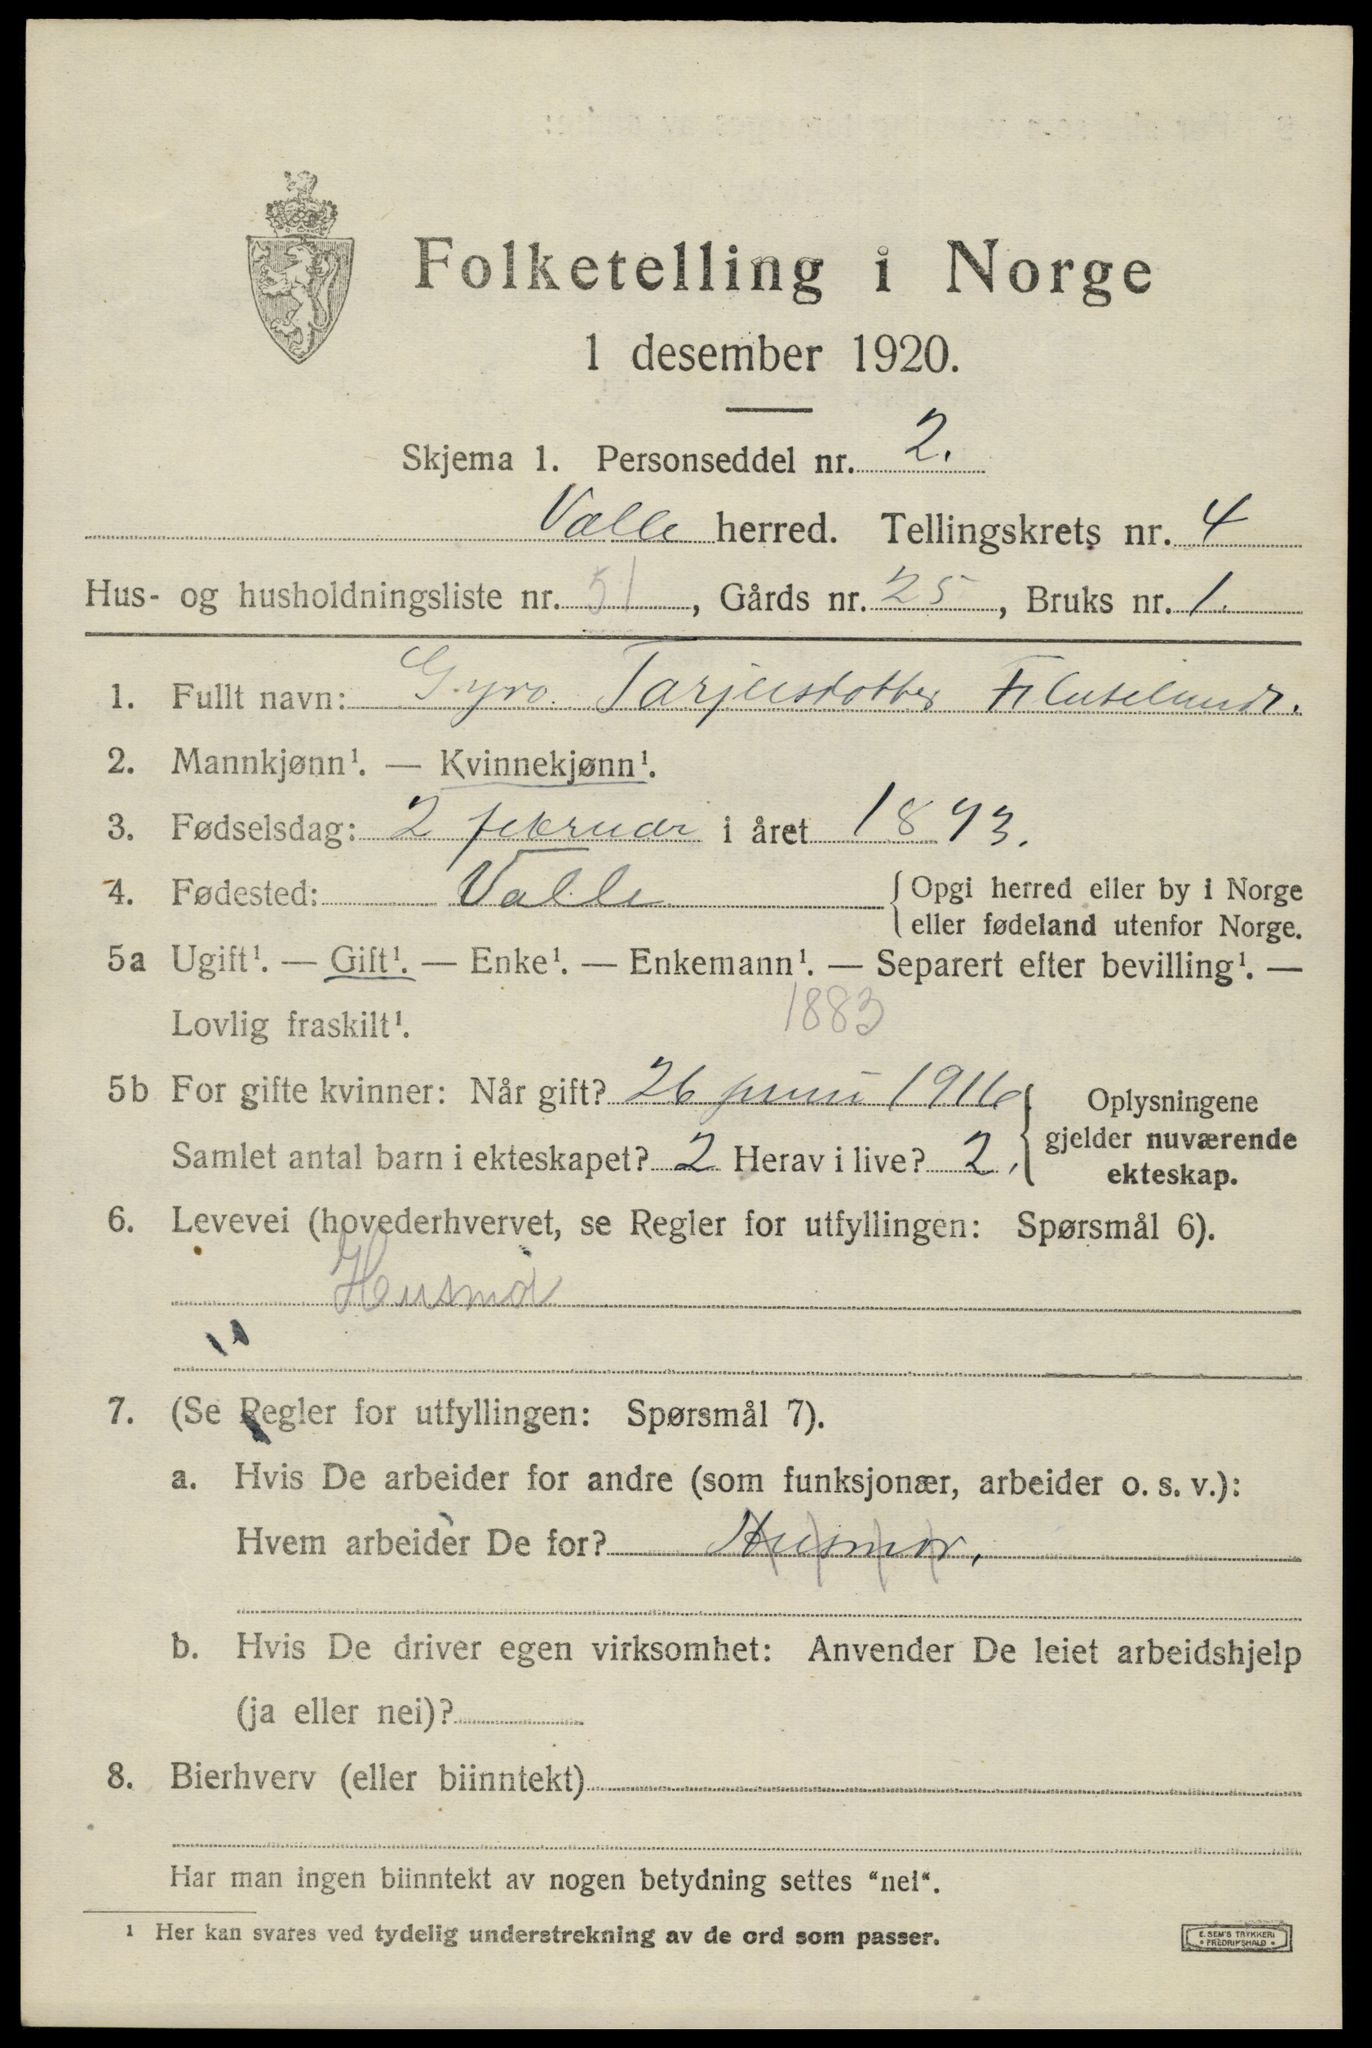 Folketelling i Norge
1 desember 1920.
Skjema 1. Personseddel nr. 2.
Valle herred. Tellingskrets nr. 4
Hus- og husholdningsliste nr. 51, Gårds nr. 25, Bruks nr. 1.
1. Fullt navn: Gyro Tarjeisdotter
2. Mannkjønn¹. — Kvinnekjønn¹.
3. Fødselsdag: 2 februar i året 1893.
4. Fødested: Valle {Opgi herred eller by i Norge
eller fødeland utenfor Norge.
5a Ugift¹. — Gift¹. — Enke¹. — Enkemann¹. — Separert efter bevilling¹. —
Lovlig fraskilt¹.
1883
5b For gifte kvinner: Når gift? 26 juni 1916 { Oplysningene
gjelder nuværende
ekteskap.
Samlet antal barn i ekteskapet? 2 Herav i live? 2.
6. Levevei (hovederhvervet, se Regler for utfyllingen: Spørsmål 6).
Husmor
7. (Se Regler for utfyllingen: Spørsmål 7).
a. Hvis De arbeider for andre (som funksjonær, arbeider o. s. v.):
Hvem arbeider De for? Husmor.
b. Hvis De driver egen virksomhet: Anvender De leiet arbeidshjelp
(ja eller nei)?
8. Bierhverv (eller biinntekt)
Har man ingen biinntekt av nogen betydning settes "nei".
¹ Her kan svares ved tydelig understrekning av de ord som passer.
E. SEM'S TRYKKERI
• FREDRIKSHALD •